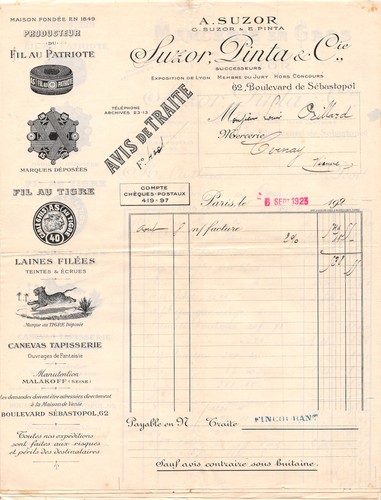 MAISON FONDÉE EN 1849
PRODUCTEUR
DU
FIL AU PATRIOTE
FIL AU PATRIOTE
MARQUES DÉPOSÉES
FIL AU TIGRE
40
LAINES FILÉES
TEINTES & ÉCRUES
Marque au TIGRE Déposée
CANEVAS TAPISSERIE
Ouvrages de Fantaisie
Manutention
MALAKOFF (SEINE)
Les demandes doivent être adressées directement
à la Maison de Vente
BOULEVARD SÉBASTOPOL, 62
Toutes nos expéditions
sont faites aux risques
et périls des destinataires
A. SUZOR
G. SUZOR & E. PINTA
Suzor, Pinta & Cie
SUCCESSEURS
EXPOSITION DE LYON MEMBRE DU JURY HORS CONCOURS
62, Boulevard de Sébastopol
TÉLÉPHONE
ARCHIVES 23-13
AVIS DE TRAITE
Monsieur Louis
Mercerie
Vienne
COMPTE
CHÈQUES-POSTAUX
419-97
Paris, le 6 SEPT 1923 192
Aout 7 n/ facture
2%
Payable en N Traite FINCOURANT
Sauf avis contraire sous huitaine.